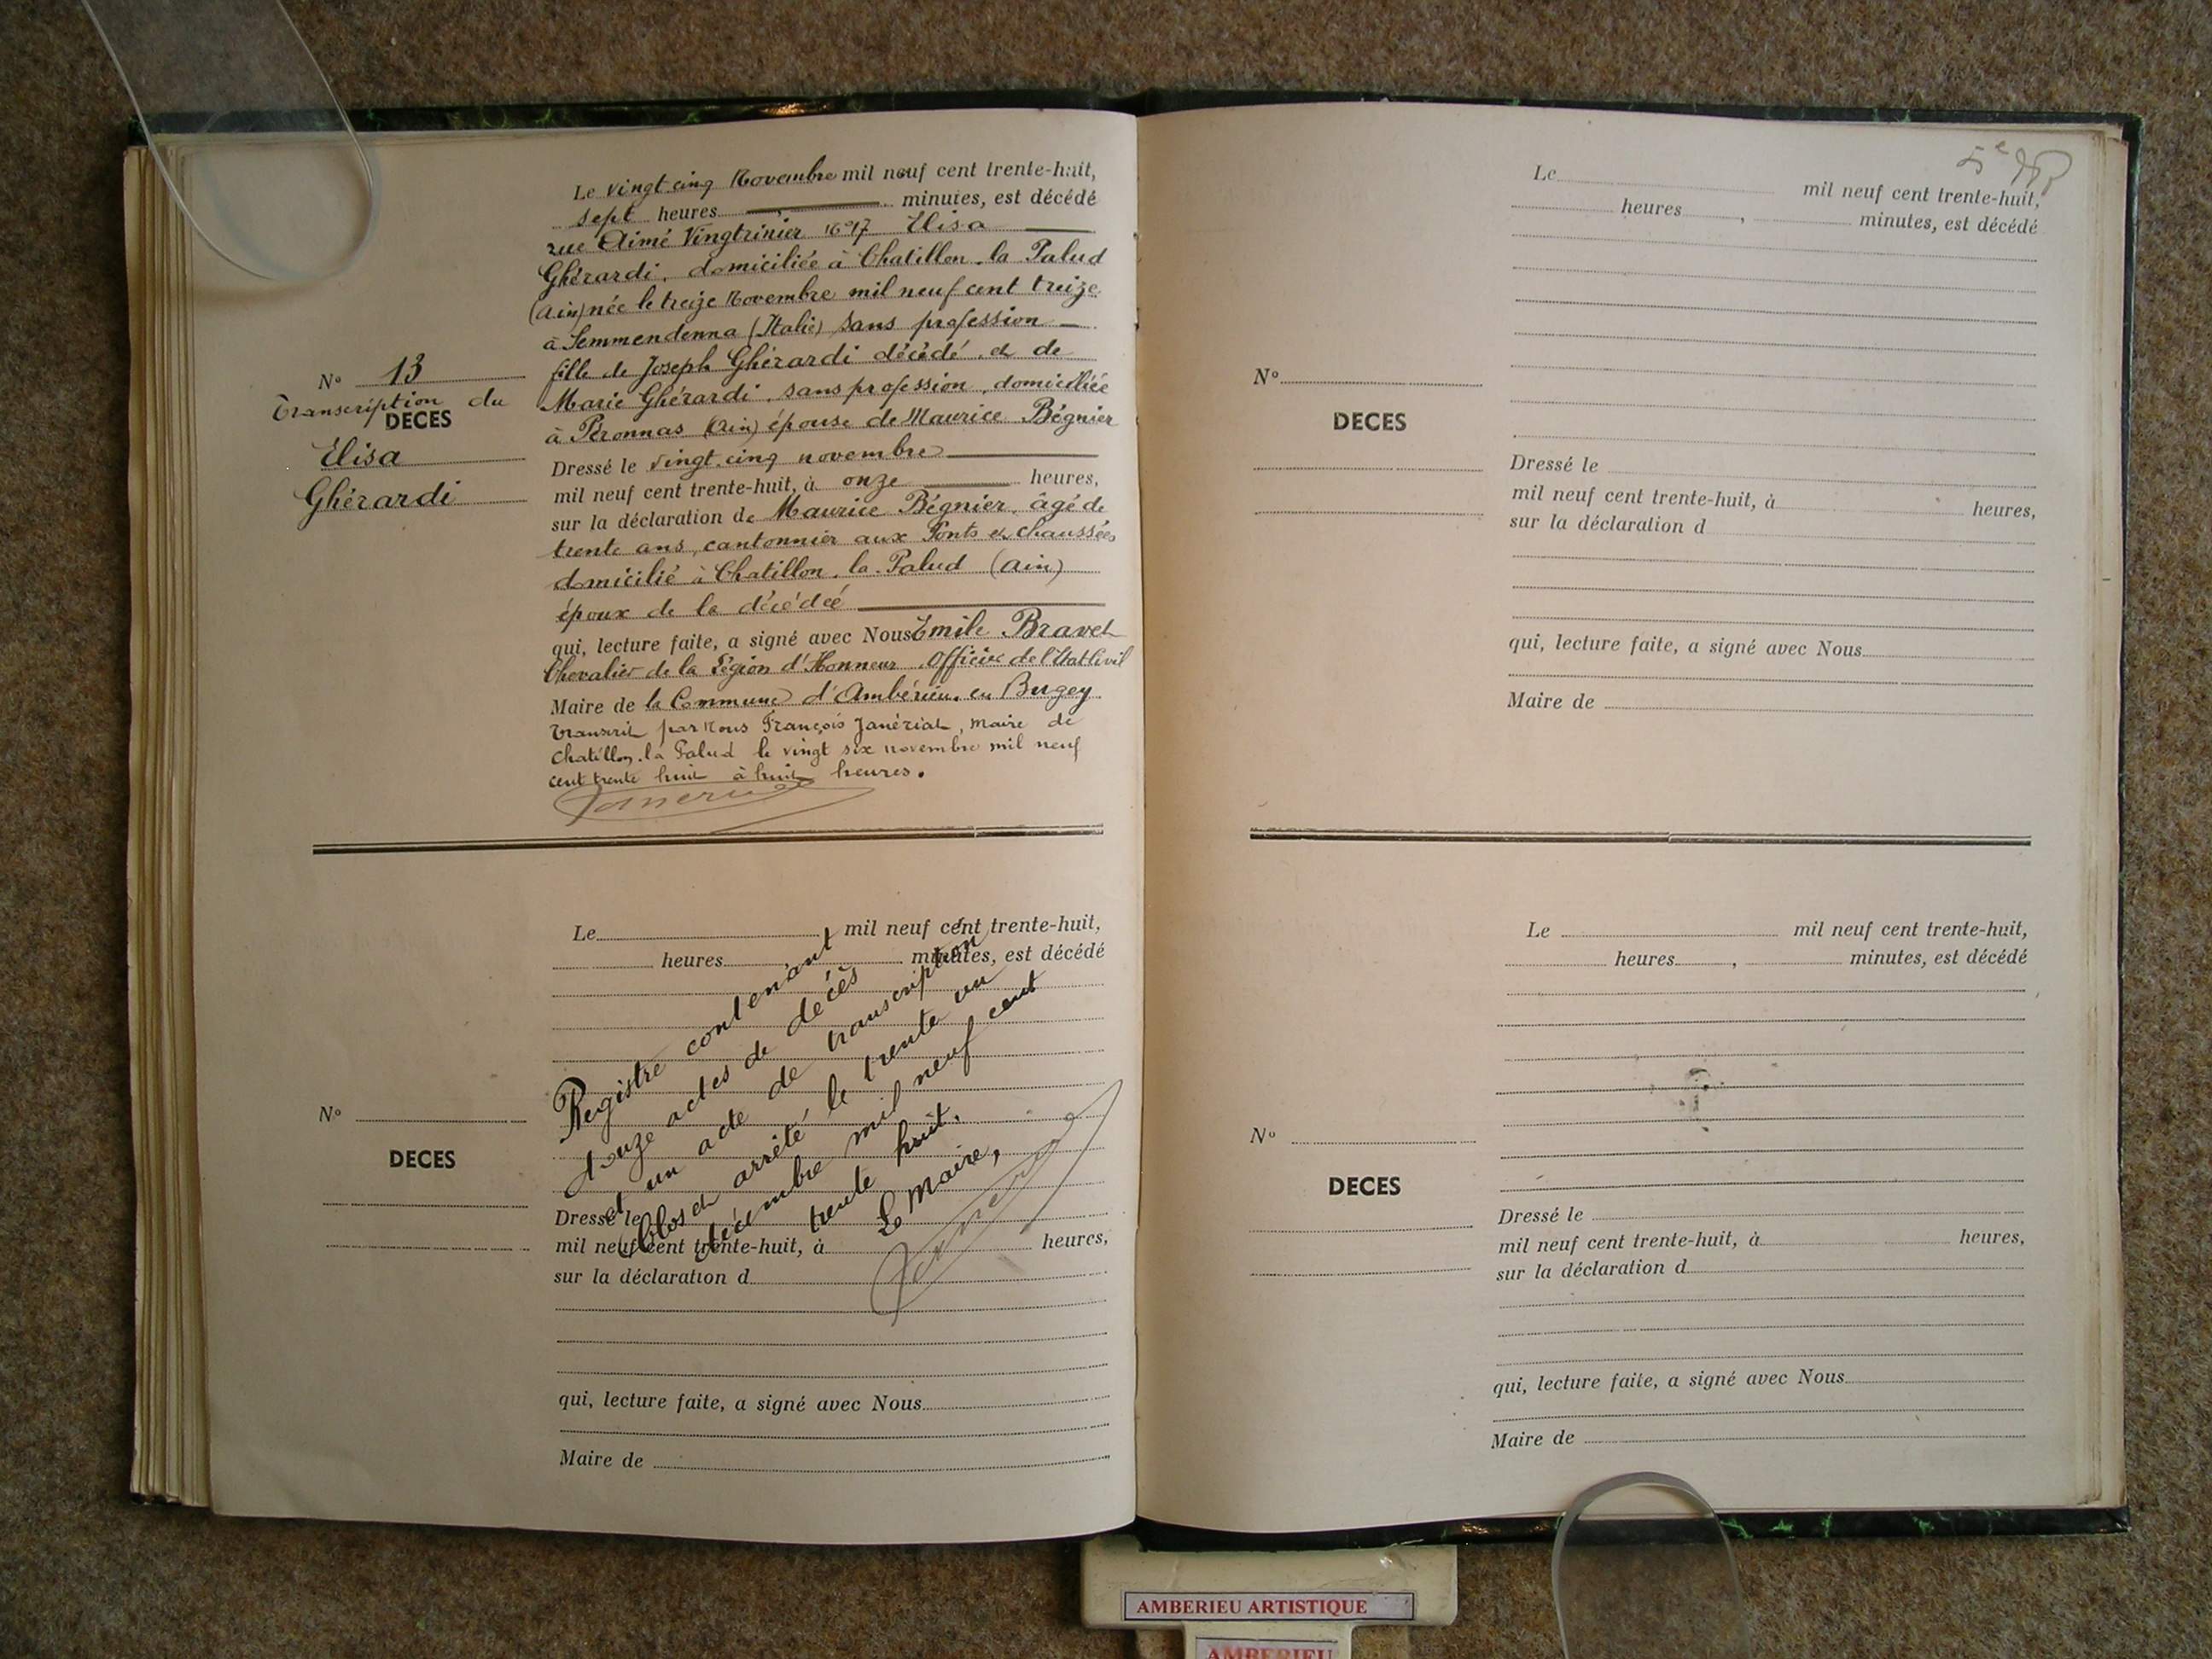 Le vingt cinq Novembre mil neuf cent trente-huit,
sept heures , minutes, est décédé
rue Aimé Vingtrinier N° 17 Elisa
Ghérardi, domiciliée à Chatillon-la Palud
(Ain) née le treize Novembre mil neuf cent treize
à Semmendenna (Italie) sans profession
fille de Joseph Ghérardi décédé et de
Marie Ghérardi, sans profession, domiciliée
à Péronnas (Ain) épouse de Maurice Bégnier
Dressé le vingt cinq novembre
mil neuf cent trente-huit, à onze heures,
sur la déclaration de Maurice Bégnier, âgé de
trente ans, cantonnier aux Ponts et chaussées
domicilié à Chatillon-la-Palud (Ain)
époux de la décédée
qui, lecture faite, a signé avec Nous Emile Bravet
Chevalier de la Légion d'Honneur Officier de l'Etat Civil
Maire de la Commune d'Ambérieu-en Bugey
Transcrit par Nous François Janériat, maire de
Chatillon-la Palud le vingt six novembre mil neuf
cent trente huit à huit heures.
N° 13
Transcription du
DECES
Elisa
Ghérardi
Le mil neuf cent trente-huit,
heures , minutes, est décédé
Registre contenant
douze actes de décès
et un acte de transcription
Clos et arrêté le trente un
décembre mil neuf cent
trente huit.
Le Maire,
N°
DECES
Dressé le
mil neuf cent trente-huit, à heures,
sur la déclaration d
qui, lecture faite, a signé avec Nous
Maire de
5e
Le mil neuf cent trente-huit,
heures , minutes, est décédé
N°
DECES
Dressé le
mil neuf cent trente-huit, à heures,
sur la déclaration d
qui, lecture faite, a signé avec Nous
Maire de
Le mil neuf cent trente-huit,
heures , minutes, est décédé
N°
DECES
Dressé le
mil neuf cent trente-huit, à heures,
sur la déclaration d
qui, lecture faite, a signé avec Nous
Maire de
AMBERIEU ARTISTIQUE
AMBERIEU